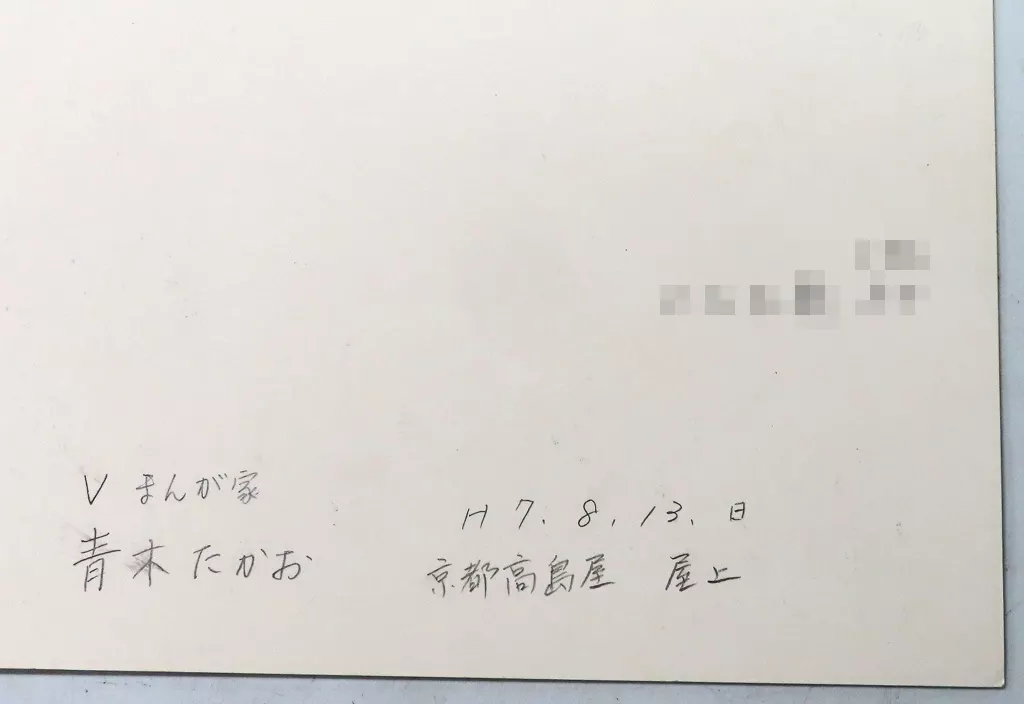 V まんが家
青木たかお
H7.8.13.日
京都高島屋 屋上